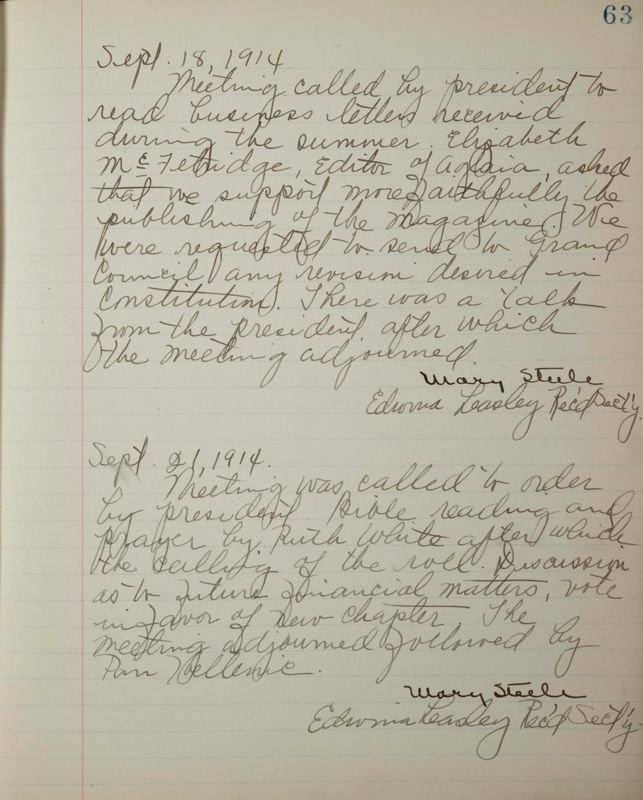 63
Sept. 18, 1914.
Meeting called by president to
read business letters received
during the summer. Elizabeth
Mc Fetridge, Editor of Aglaia, asked
that we support more faithfully the
publishing of the magazine. We
were requested to send to Grand
Council any revision desired in
Constitution. There was a talk
from the president after which
the meeting adjourned
Mary Steele
Edwina Leasley Rec'd Sect'y.
Sept. 21, 1914.
Meeting was called to order
by president. Bible reading and
prayer by Ruth White after which
the calling of the roll. Discussion
as to future financial matters, vote
in favor of new chapter. The
meeting adjourned followed by
Pan Hellenic.
Mary Steele
Edwina Leasley Rec'd Sect'y.